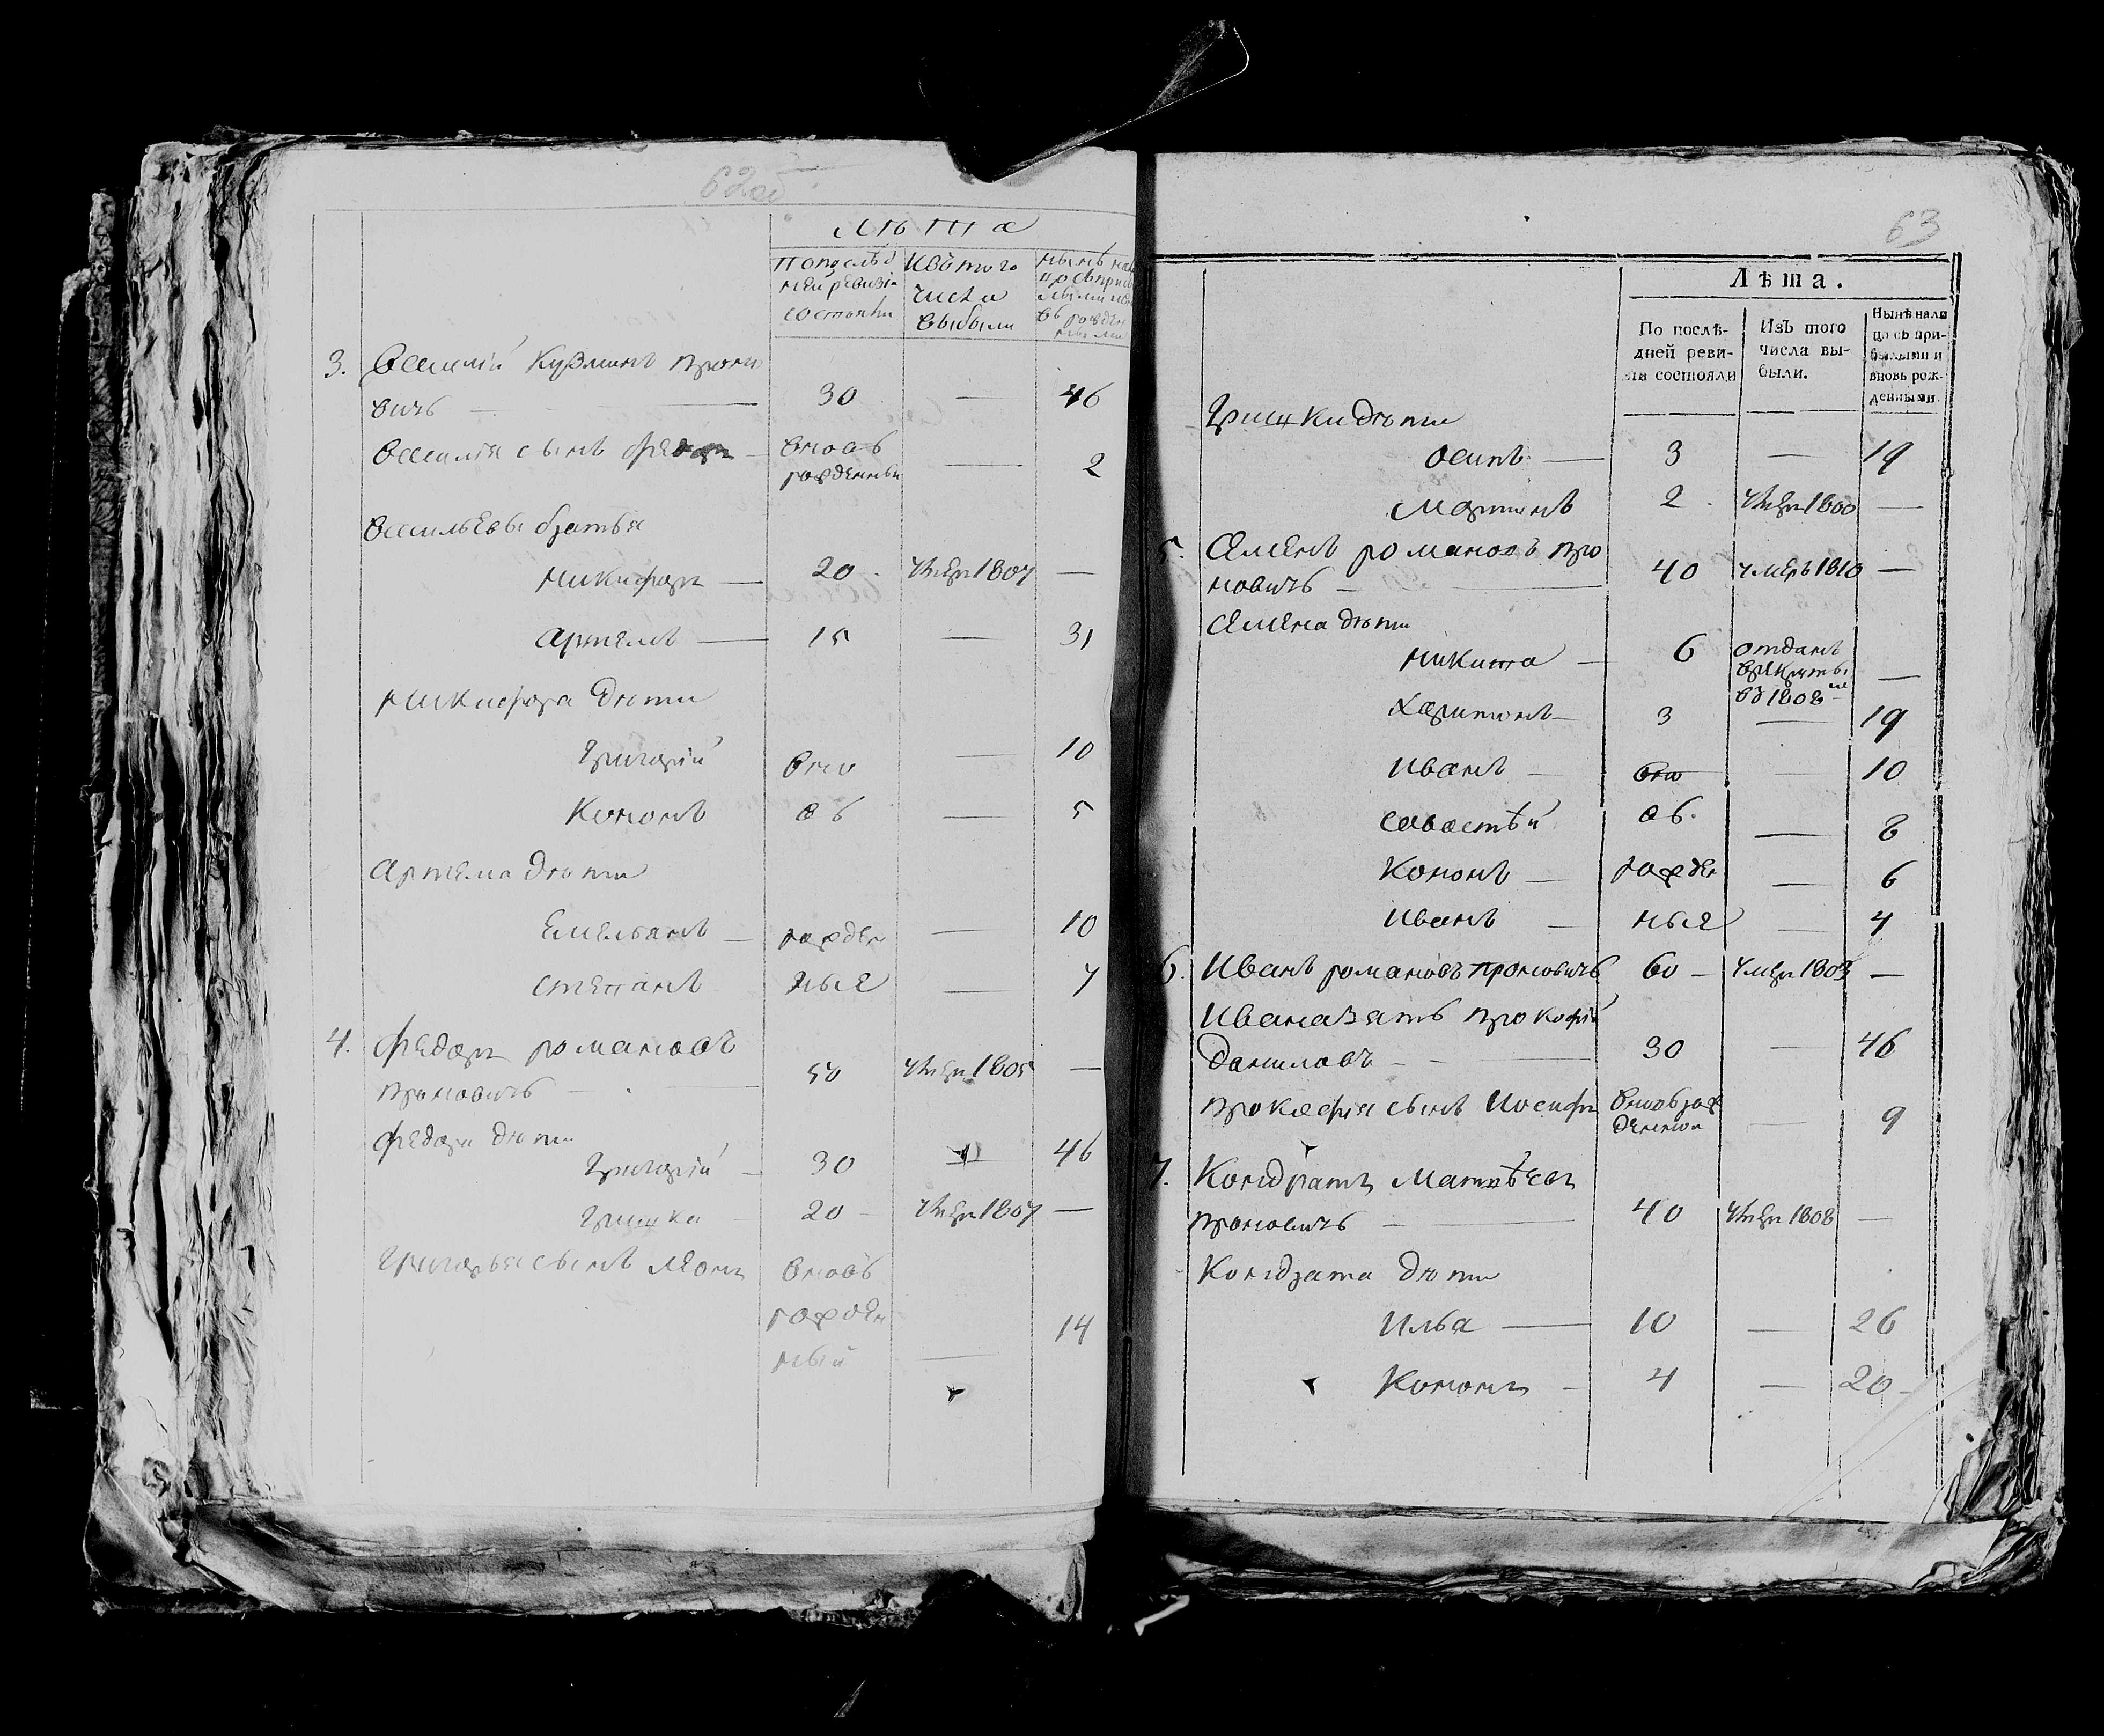 62об
Лѣта
попослѣд
ней ревизiи
состояли
Изъ того
числа
выбыли
3. Василiй Кузминъ Проно
вичъ — 30 — 46
Василiя сынъ Федоръ — вновь
рожденный — 2
Васильевы братья
Никифоръ — 20 умеръ 1807 —
Артемъ — 15 — 31
Никифора дѣти
Григорiй вно — 10
Кононъ въ — 5
Артема дѣти
Емельянъ — рожден — 10
Степанъ ные — 7
4. Федоръ романовъ
Проновичъ — 50 умеръ 1805 —
Федора дѣти
Григорiй — 30 — 46
Гришка — 20 — умеръ 1807 —
Григорья сынъ Леонъ вновь
рожден 14
ный —
63
Лѣта.
По послѣ-
дней реви-
зiи состояли
Изъ того
числа вы-
были.
Нынѣ нали
цо съ при-
былыми и
вновь рож-
денными.
Гришки дѣти
Осипъ — 3 — 19
Мартинъ 2 умеръ 1800 —
5. Семенъ романовъ Про
новичъ — 40 умеръ 1810 —
Семена дѣти
Никита — 6 отданъ
врекруты
въ 1808м —
Харитонъ — 3 — 19
Иванъ — вно — 10
Савостѣй въ — 8
Кононъ — рожден — 6
Иванъ — ные — 4
6. Иванъ романовъ Проновичъ 60 — умеръ 1803 —
Ивана зять Прокофiй
Даниловъ — 30 — 46
Прокофiя сынъ Иосифъ вновь рож
денной — 9
7. Кондратъ Матвѣевъ
Проновичъ — 40 умеръ 1808 —
Кондрата дѣти
Илья — 10 — 26
Кононъ — 4 — 20